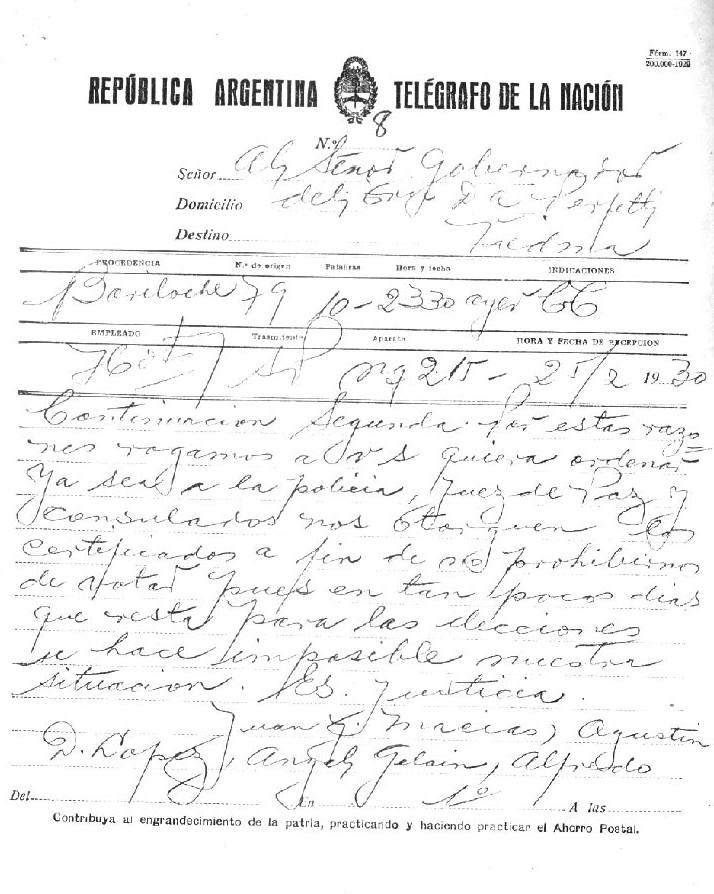 Fórm. 147
200.000-1929
REPÚBLICA ARGENTINA TELÉGRAFO DE LA NACIÓN
N.º 8
Señor Al Señor Gobernador
Domicilio del Perfetti
Destino Viedma
PROCEDENCIA N.º de origen Palabras Hora y fecha INDICACIONES
Bariloche 79 10 - 2330 ayer CC
EMPLEADO Trasmitente Aparato HORA Y FECHA DE RECEPCION
215 - 25/2 1930
Continuacion Segunda. Por estas razo=
nes rogamos a v s quiera ordenar
ya sea a la policia, Juez de Paz y
consulados nos otorguen los
certificados a fin de no prohibirnos
de votar pues en tan pocos dias
que resta para las elecciones
se hace imposible nuestra
situacion. Es Justicia.
Juan Macias, Agustin
D. Lopez, Angel Gelain, Alfredo
Del En 1º A las
Contribuya al engrandecimiento de la patria, practicando y haciendo practicar el Ahorro Postal.